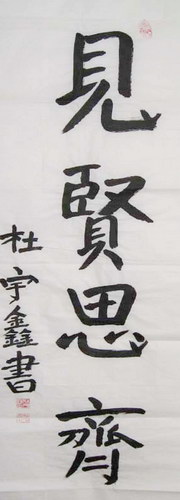 見賢思齊
杜宇鑫書